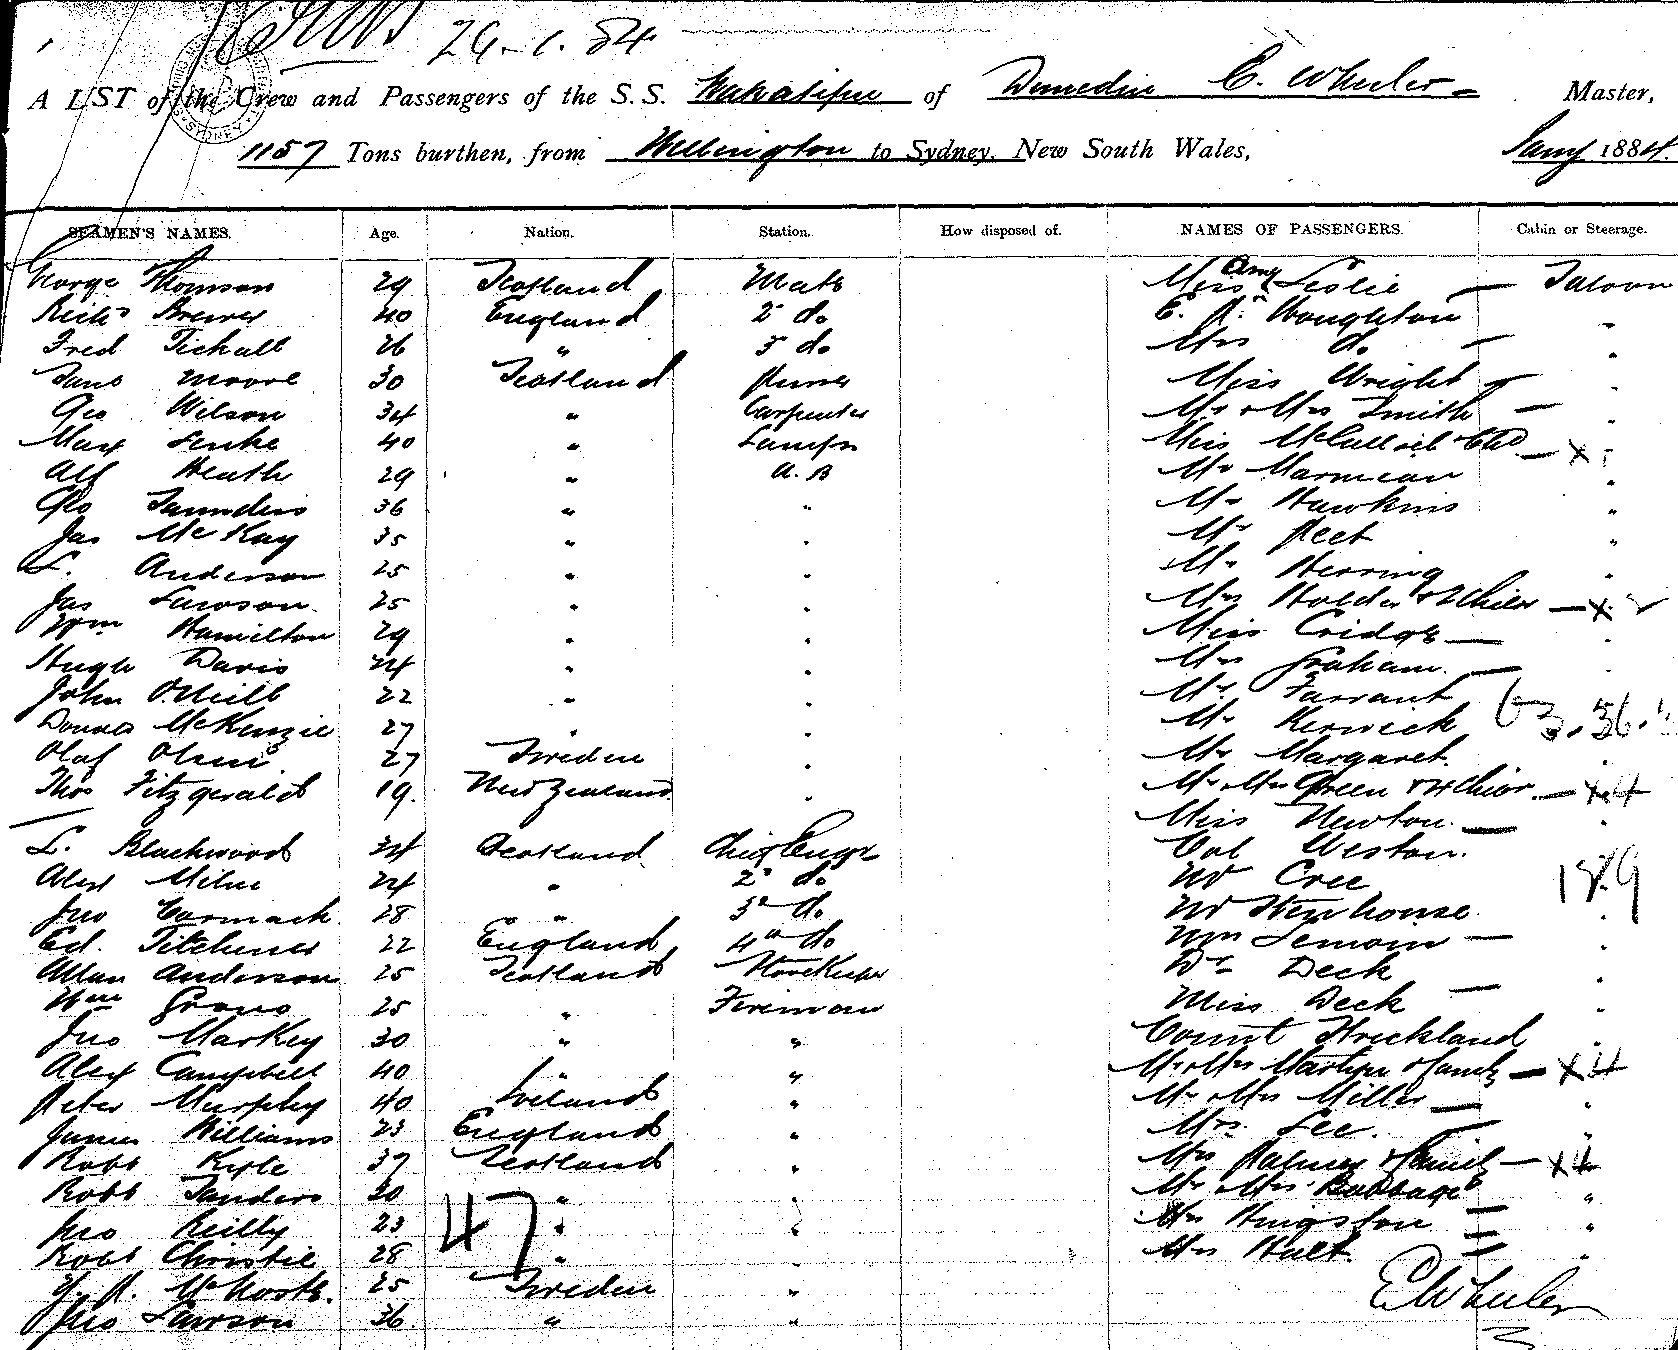 26-1.84
A LIST of the Crew and Passengers of the S.S. Wakatipu of Dunedin C. Wheeler Master,
1157 Tons burthen, from Wellington to Sydney, New South Wales, Jany 1884.
SEAMEN'S NAMES. Age. Nation. Station. How disposed of. NAMES OF PASSENGERS. Cabin or Steerage.
George Thomson 29 Scotland Mate Miss Amy Leslie — Saloon
Richd Brewer 40 England 2d do E. R. Houghton "
Fred Tickall 26 " 3d do Mrs do — "
Jans Moore 30 Scotland Purser Miss Wright "
Geo Wilson 34 " Carpenter Mr & Mrs Smith — "
Max 40 " Lamps Miss — x "
Alf Heath 29 " A.B Mr "
Geo Saunders 36 " " Mr Hawkins "
Jas McKay 35 " " Mr Peet "
L. Anderson 25 " " Mr Herring "
Jas Lawson 25 " " Mrs Holder & 2 Chiln — x
Wm Hamilton 29 " " Miss Cridge — "
Hugh Davis 24 " " Mrs Graham — "
John O'Neill 22 " " Mr Farrant
Donald McKenzie 27 " " Mr Kerwick
Olaf 27 Sweden " Mr Margaret
Thos Fitzgerald 19 New Zealand " Mr & Mrs Green & 4 Chior — x4
Miss Newton — "
L. Blackwood 34 Scotland Chief Engr Col Weston
Alex Milne 24 " 2d do Mr Cree
Jno Cormack 28 " 3d do Mr Kenhouse "
Ed. Titchener 22 England 4th do Wm — "
Allan Anderson 25 Scotland Storekeeper Dr Deck "
Wm 25 " Fireman Miss Deck — "
Jno Markey 30 " " Count Strickland "
Alex Campbell 40 " " Mr & Mrs Martyn & Family — x4
Peter Murphy 40 Ireland " Mr & Mrs Miller — "
James Williams 23 England " Mrs Lee — "
Robt Kyle 37 Scotland " Mrs Palmer & Family — x4
Robt Sanders 30 " " Mr & Mrs Babbage "
Jno Reilly 23 " " Mrs Hingston — "
Robt Christie 28 " " Mrs Halt — "
25 Sweden "
Jno Lawson 36 " "
47
C Wheeler